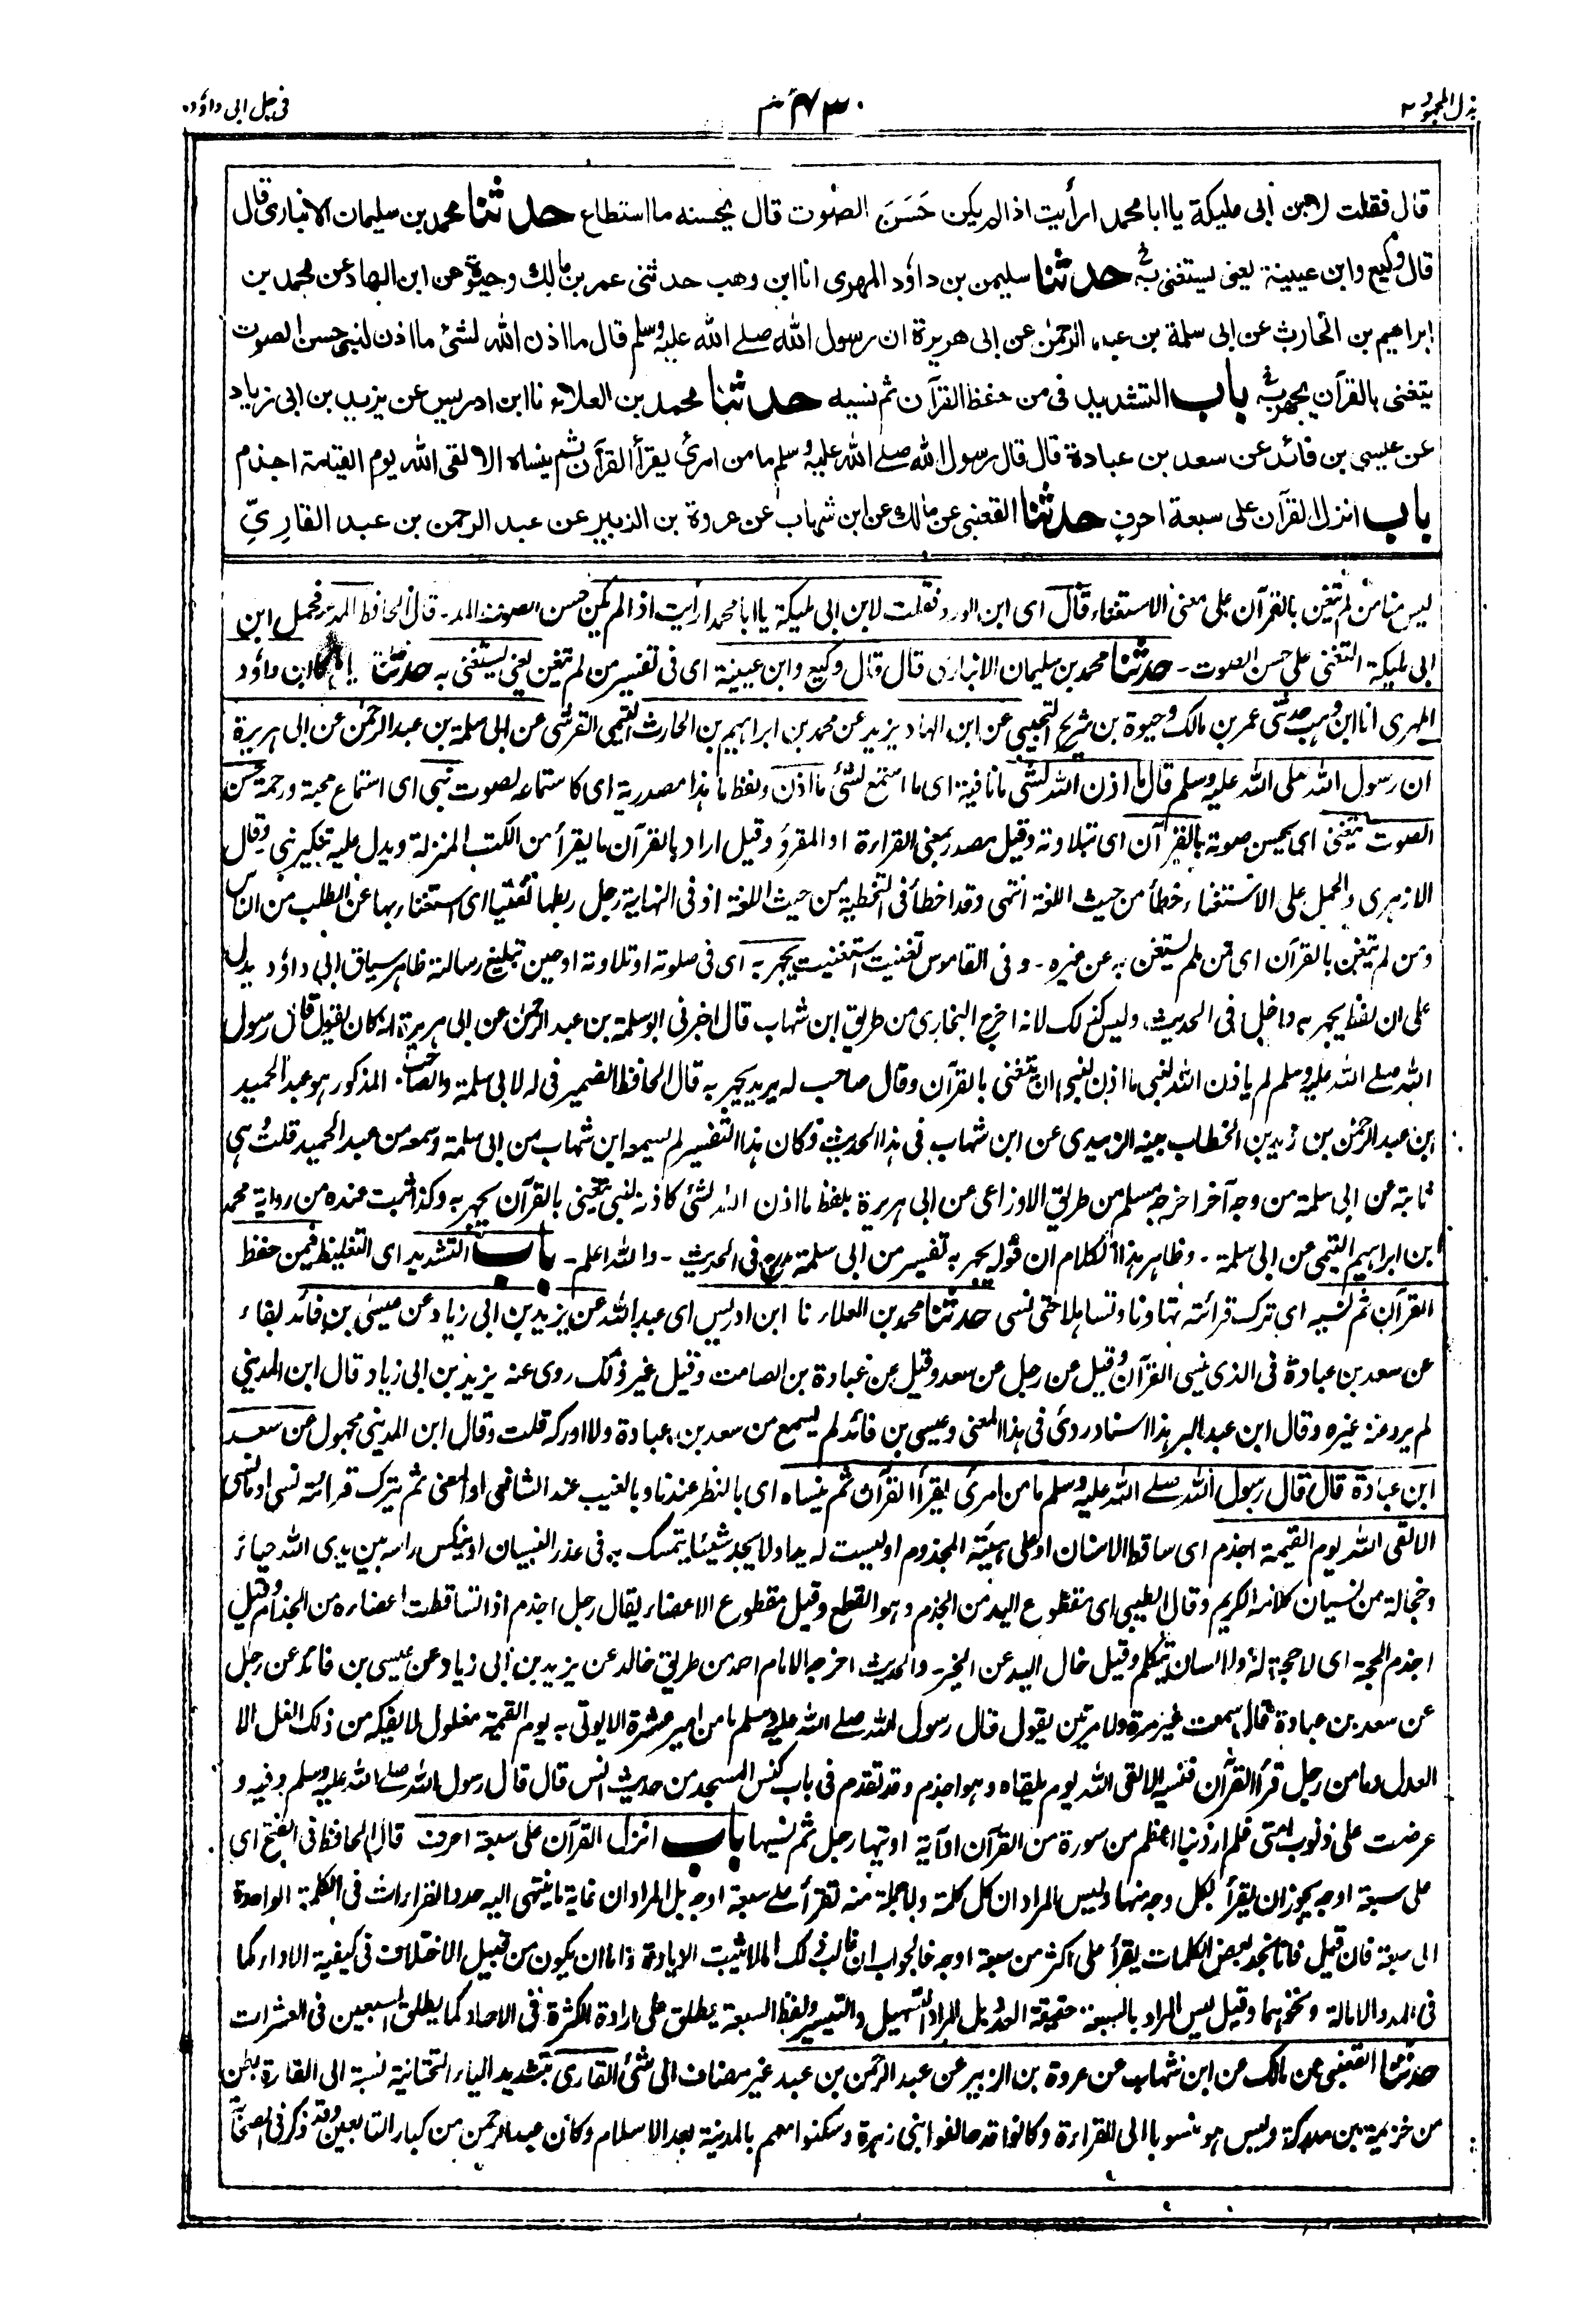 بذل المجهود ٢
٣٣٠
في حل ابى داؤد
قال فقلت لابن أبى مليكة يا ابا محمد ارأيت اذا لم يكن حَسَنَ الصوت قال يحسنه ما استطاع حدثنا محمد بن سليمان الانبارى قال
قال وكيع وابن عيينة يعنى يستغنى به حدثنا سليمن بن داؤد المهرى انا ابن وهب حدثنى عمر بن مالك وحيوة عن ابن الهاد عن محمد بن
ابراهيم بن الحارث عن ابى سلمة بن عبد الرحمن عن ابى هريرة ان رسول الله صلے الله عليه وسلم قال ما اذن الله لشئ ما اذن لنبى حسن الصوت
يتغنى بالقرآن يجهر به باب التشديد فى من حفظ القرآن ثم نسيه حدثنا محمد بن العلاء نا ابن ادريس عن يزيد بن ابى زياد
عن عيسى بن فائد عن سعد بن عبادة قال قال رسول الله صلے الله عليه وسلم ما من امرئ يقرأ القرآن ثم ينساه الا لقى الله يوم القيامة اجذم
باب انزل القرآن على سبعة احرف حدثنا القعنبى عن مالك عن ابن شهاب عن عروة بن الزبير عن عبد الرحمن بن عبد القارِىِّ
ليس منا من لم يتغن بالقرآن على معنى الاستغناء قال اى ابن الورد فقلت لابن ابى مليكة يا ابا محمد ارأيت اذا لم يكن حسن الصوت الخ۔ قال الحافظ فحمل ابن
ابى مليكة التغنى على حسن الصوت۔ حدثنا محمد بن سليمان الانبارى قال قال وكيع وابن عيينة اى فى تفسير من لم يتغن يعنى يستغنى به حدثنا ابن داؤد
المهرى انا ابن وهب حدثنى عمر بن مالك وحيوة بن شريح التجيبى عن ابن الهاد يزيد عن محمد بن ابراهيم بن الحارث التيمى القرشى عن ابى سلمة بن عبد الرحمن عن ابى هريرة
ان رسول الله صلى الله عليه وسلم قال ما اذن الله لشئ ما نافية اى ما استمع لشئ ما اذن ولفظ ما هذا مصدرية اى كاستماعه لصوت نبى اى استماع محبة ورحمة حسن
الصوت يتغنى اى يحسن صوته بالقرآن اى بتلاوته وقيل مصدر بمعنى القراءة او المقرؤ وقيل اراد بالقرآن ما يقرأ من الكتب المنزلة ويدل عليه تنكير نبى وقال
الازهرى والحمل على الاستغناء خطأ من حيث اللغة انتهى وقد اخطأ فى التخطية من حيث اللغة اذ فى النهاية رجل ربطها تغنيا اى استغناء بها عن الطلب من الناس
ومن لم يتغن بالقرآن اى من لم يستغن به عن غيره۔ وفى القاموس تغنيت استغنيت يجهر به اى فى صلوته او تلاوته او حين تبليغ رسالته ظاهر سياق ابى داؤد يدل
على ان لفظ يجهر به داخل فى الحديث، وليس كذلك لانه اخرج البخارى من طريق ابن شهاب قال اخبرنى ابو سلمة بن عبد الرحمن عن ابى هريرة انه كان يقول قال رسول
الله صلے الله عليه وسلم لم ياذن الله لنبى ما اذن لنبى ان يتغنى بالقرآن وقال صاحب له يريد يجهر به قال الحافظ الضمير فى له لابى سلمة والصاحب المذكور هو عبد الحميد
ابن عبد الرحمن بن زيد بن الخطاب بينه الزبيدى عن ابن شهاب فى هذا الحديث وكان هذا التفسير لم يسمعه ابن شهاب من ابى سلمة وسمعه من عبد الحميد قلت هى
ثابتة عن ابى سلمة من وجه آخر اخرجه مسلم من طريق الاوزاعى عن ابى هريرة بلفظ ما اذن الله لشئ كاذنه لنبى يتغنى بالقرآن يجهر به وكذا ثبت عنده من رواية محمد
بن ابراهيم التيمى عن ابى سلمة۔ وظاهر هذا الكلام ان قوله يجهر به تفسير من ابى سلمة مدرج فى الحديث۔ والله اعلم۔ باب التشديد اى التغليظ فيمن حفظ
القرآن ثم نسيه اى ترك قرائته تهاونا وتساهلا حتى نسى حدثنا محمد بن العلاء نا ابن ادريس اى عبد الله عن يزيد بن ابى زياد عن عيسى بن فائد بفاء
عن سعد بن عبادة فى الذى ينسى القرآن وقيل عن رجل عن سعد وقيل عن عبادة بن الصامت وقيل غير ذلك روى عنه يزيد بن ابى زياد قال ابن المدينى
لم يرو عنه غيره وقال ابن عبد البر هذا اسناد ردئ فى هذا المعنى وعيسى بن فائد لم يسمع من سعد بن عبادة ولا ادركه قلت وقال ابن المدينى مجهول عن سعد
ابن عبادة قال قال رسول الله صلے الله عليه وسلم ما من امرئ يقرأ القرآن ثم ينساه اى بالنظر عندنا وبالغيب عند الشافعى او المعنى ثم يترك قرائته نسى او مانسى
الا لقى الله يوم القيمة اجذم اى ساقط الاسنان او على هيئة المجذوم او ليست له يد او لا يجد شيئا يتمسك به فى عذر النسيان او ينكس راسه بين يدى الله حياء
وخجالة من نسيان كلامه الكريم وقال الطيبى اى مقطوع اليد من الجذم وهو القطع وقيل مقطوع الاعضاء يقال رجل اجذم اذا تساقطت اعضاءه من الجذام وقيل
اجذم الحجة اى لاحجة له ولا لسان يتكلم وقيل خال اليد عن الخير۔ والحديث اخرجه الامام احمد من طريق خالد عن يزيد بن ابى زياد عن عيسى بن فائد عن رجل
عن سعد بن عبادة قال سمعت غير مرة ولا مرتين يقول قال رسول الله صلے الله عليه وسلم ما من امير عشرة الا يوتى به يوم القيمة مغلول لا يفكه من ذلك الغل الا
العدل وما من رجل قرأ القرآن فنسيه الا لقى الله يوم يلقاه وهو اجذم وقد تقدم فى باب كنس المسجد من حديث انس قال قال رسول الله صلے الله عليه وسلم وفيه و
عرضت على ذنوب امتى فلم ار ذنبا اعظم من سورة من القرآن او آية اوتيها رجل ثم نسيها باب انزل القرآن على سبعة احرف قال الحافظ فى الفتح اى
على سبعة اوجه يجوز ان يقرأ بكل وجه منها وليس المراد ان كل كلمة ولا جملة منه تقرأ على سبعة اوجه بل المراد ان غاية ما ينتهى اليه عدد القراءات فى الكلمة الواحدة
الى سبعة فان قيل فانا نجد بعض الكلمات يقرأ على اكثر من سبعة اوجه فالجواب ان غالب ذلك اما لا يثبت الزيادة واما ان يكون من قبيل الاختلاف فى كيفية الاداء كما
فى المد والامالة ونحوهما وقيل ليس المراد بالسبعة حقيقة العدد بل المراد التسهيل والتيسير ولفظ السبعة يطلق على ارادة الكثرة فى الاحاد كما يطلق السبعين فى العشرات
حدثنا القعنبى عن مالك عن ابن شهاب عن عروة بن الزبير عن عبد الرحمن بن عبد غير مضاف الى شئ القارى بتشديد الياء التحتانية نسبة الى القارة بطن
من خزيمة بن مدركة وليس هو منسوبا الى القراءة وكانوا قد حالفوا بنى زهرة وسكنوا معهم بالمدينة بعد الاسلام وكان عبد الرحمن من كبار التابعين وقد ذكر فى الصحابة